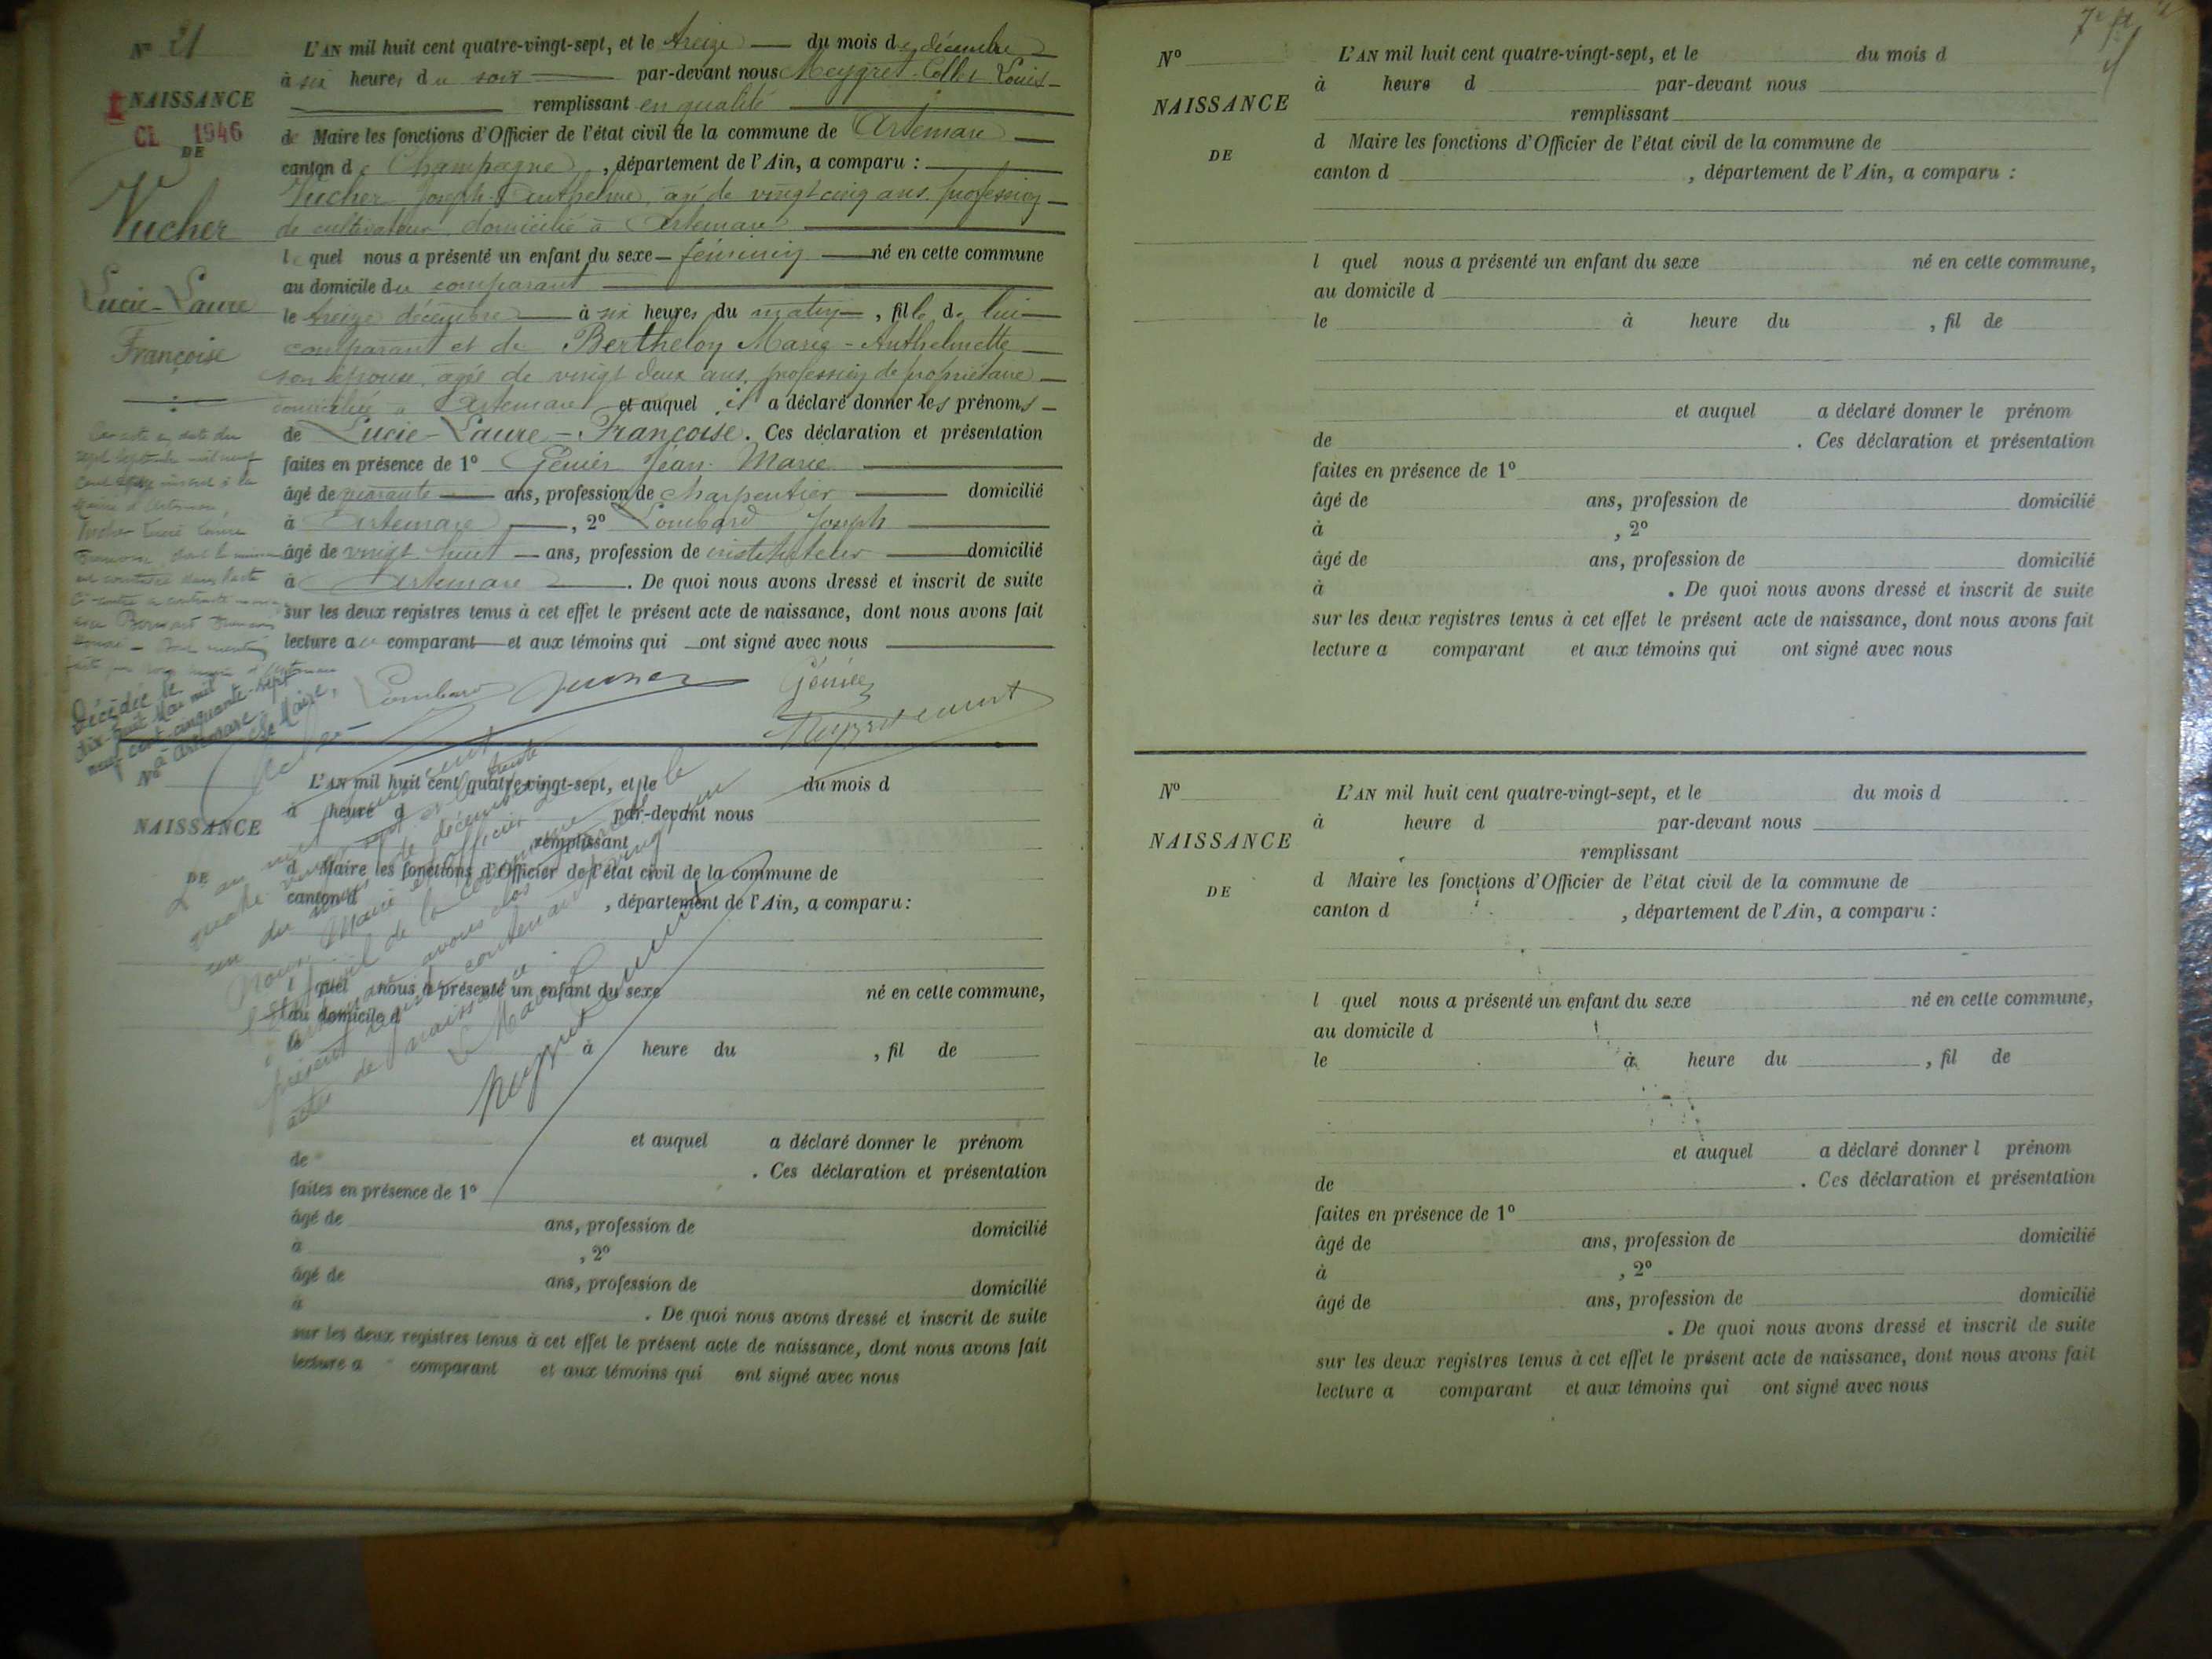 N° 21
NAISSANCE
CL 1946
DE
Vucher
Lucie-Laure
Françoise
L'AN mil huit cent quatre-vingt-sept, et le treize du mois de décembre
à six heures du soir par-devant nous Meygret-Collet Louis
remplissant en qualité
de Maire les fonctions d'Officier de l'état civil de la commune de Artemare
canton de Champagne, département de l'Ain, a comparu :
Vucher Joseph-Anthelme, agé de vingt cinq ans, profession
de cultivateur domicilié à Artemare
lequel nous a présenté un enfant du sexe féminin né en cette commune
au domicile du comparant
le treize décembre à six heures du matin, fille de lui
comparant et de Bertheloy Marie-Anthelmette
son épouse, agée de vingt deux ans, profession de propriétaire
domiciliée à Artemare et auquel il a déclaré donner les prénoms
de Lucie-Laure-Françoise. Ces déclaration et présentation
faites en présence de 1° Génier Jean-Marie
âgé de quarante ans, profession de charpentier domicilié
à Artemare, 2° Lombard Joseph
âgé de vingt huit ans, profession de instituteur domicilié
à Artemare. De quoi nous avons dressé et inscrit de suite
sur les deux registres tenus à cet effet le présent acte de naissance, dont nous avons fait
lecture au comparant et aux témoins qui ont signé avec nous
Lombard
Génier
Vucher Lucie Laure
Décédée le
dix-huit Mai mil
neuf cent cinquante-sept
à Artemare.
Le Maire,
N°
NAISSANCE
DE
L'AN mil huit cent quatre-vingt-sept, et le du mois d
à heure d par-devant nous
remplissant
d Maire les fonctions d'Officier de l'état civil de la commune de
canton d , département de l'Ain, a comparu :
l quel nous a présenté un enfant du sexe né en cette commune,
au domicile d
le à heure du , fil de
et auquel a déclaré donner le prénom
de . Ces déclaration et présentation
faites en présence de 1°
âgé de ans, profession de domicilié
à , 2°
âgé de ans, profession de domicilié
à . De quoi nous avons dressé et inscrit de suite
sur les deux registres tenus à cet effet le présent acte de naissance, dont nous avons fait
lecture a comparant et aux témoins qui ont signé avec nous
L'an mil huit cent
quatre vingt sept et le trente
un du mois de décembre
Nous, Maire et officier de
l'état civil de la commune
avons clos
présent registre contenant vingt un
actes de naissance
Le Maire
N°
NAISSANCE
DE
L'AN mil huit cent quatre-vingt-sept, et le du mois d
à heure d par-devant nous
remplissant
d Maire les fonctions d'Officier de l'état civil de la commune de
canton d , département de l'Ain, a comparu :
l quel nous a présenté un enfant du sexe né en cette commune,
au domicile d
le à heure du , fil de
et auquel a déclaré donner le prénom
de . Ces déclaration et présentation
faites en présence de 1°
âgé de ans, profession de domicilié
à , 2°
âgé de ans, profession de domicilié
à . De quoi nous avons dressé et inscrit de suite
sur les deux registres tenus à cet effet le présent acte de naissance, dont nous avons fait
lecture a comparant et aux témoins qui ont signé avec nous
N°
NAISSANCE
DE
L'AN mil huit cent quatre-vingt-sept, et le du mois d
à heure d par-devant nous
remplissant
d Maire les fonctions d'Officier de l'état civil de la commune de
canton d , département de l'Ain, a comparu :
l quel nous a présenté un enfant du sexe né en cette commune,
au domicile d
le à heure du , fil de
et auquel a déclaré donner l prénom
de . Ces déclaration et présentation
faites en présence de 1°
âgé de ans, profession de domicilié
à , 2°
âgé de ans, profession de domicilié
. De quoi nous avons dressé et inscrit de suite
sur les deux registres tenus à cet effet le présent acte de naissance, dont nous avons fait
lecture a comparant et aux témoins qui ont signé avec nous